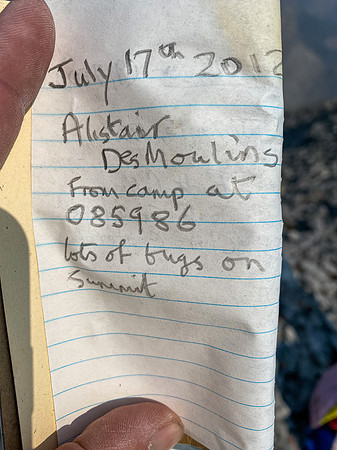 July 17th 2012
Alistair
Des Moulins
From camp at
085986
lots of bugs on
Summit